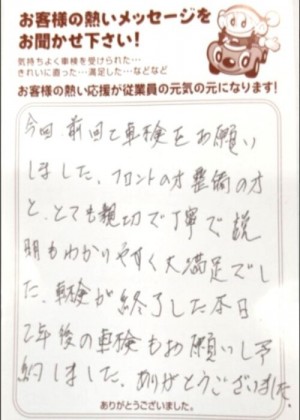 お客様の熱いメッセージを
お聞かせ下さい!
気持ちよく車検を受けられた…
きれいに直った…満足した…などなど
お客様の熱い応援が従業員の元気の元になります!
今回、前回と車検をお願い
しました。フロントの方整備の方
と、とても親切で丁寧で説
明もわかりやすく大満足でし
た。車検が終了した本日
2年後の車検もお願いし予
約しました。ありがとうございました。
ありがとうございました。